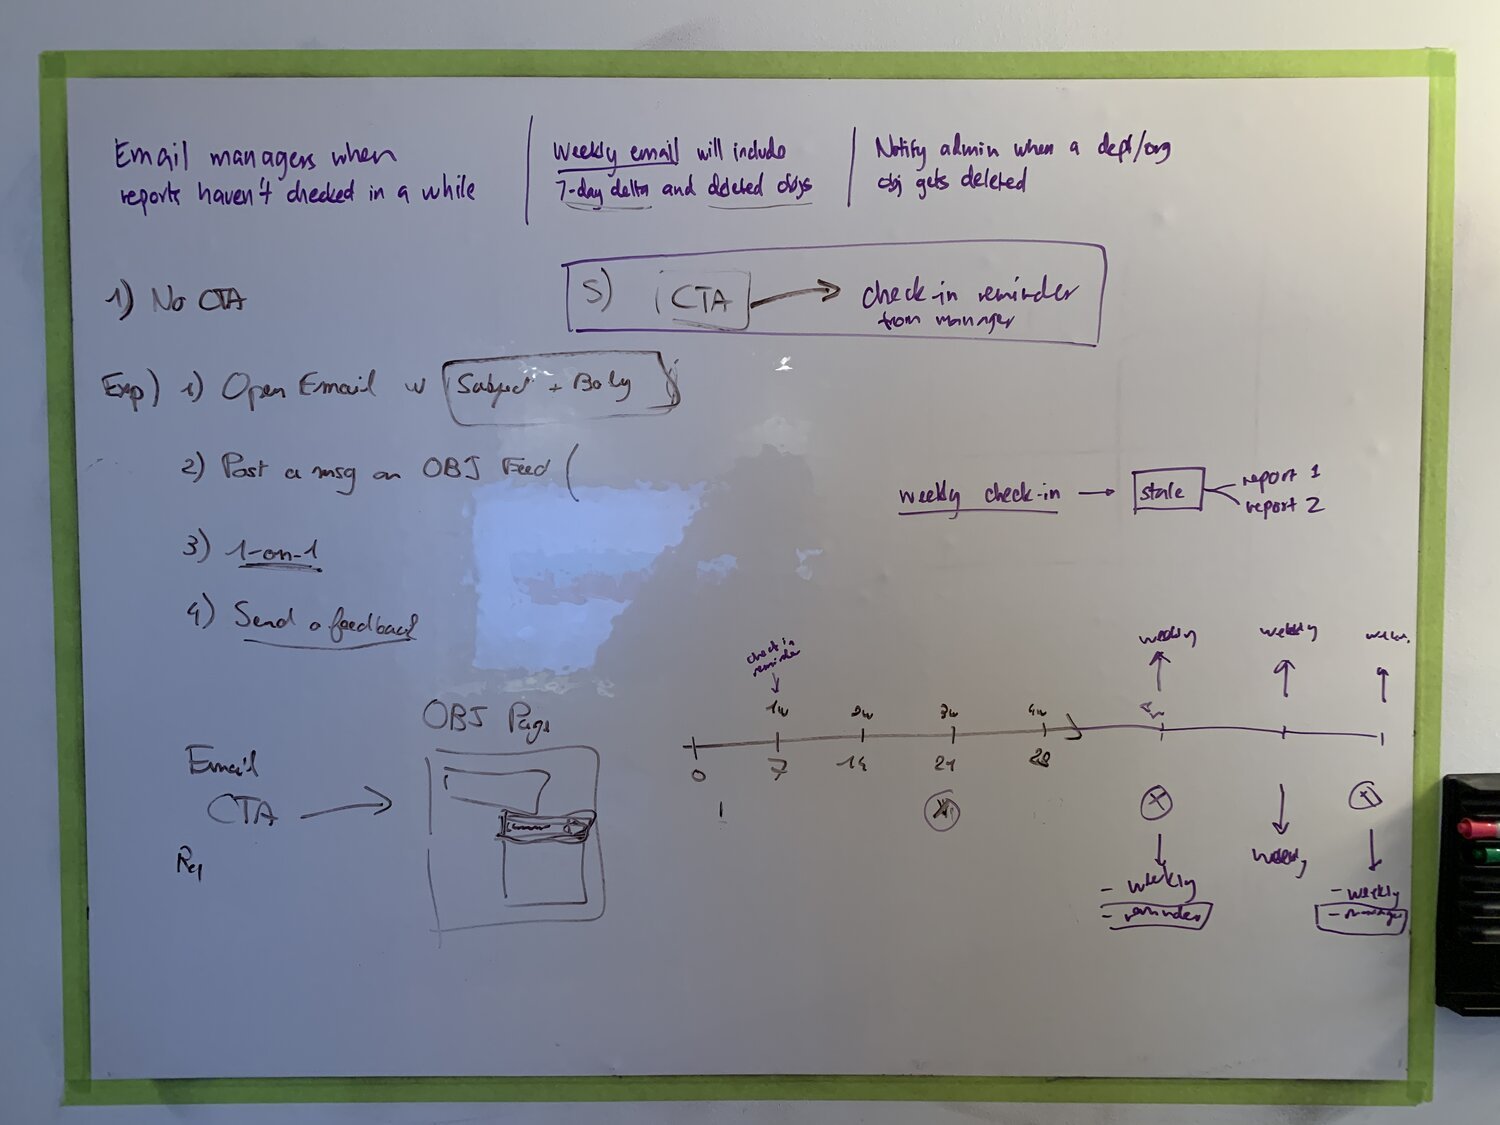 Email managers when
reports haven't checked in a while
Weekly email will include
7-day delta and deleted objs
Notify admin when a dept/org
obj gets deleted
1) No CTA
5) CTA → check-in reminder
from manager
Exp) 1) Open Email w Subject + Body
2) Post a msg on OBJ Feed (
3) 1-on-1
4) Send a feedback
weekly check-in → stale
report 1
report 2
OBJ Page
Email
CTA →
check in
reminder
1w 2w 3w 4w
0 7 14 21 28
weekly
weekly
weekly
- weekly
- reminder
- weekly